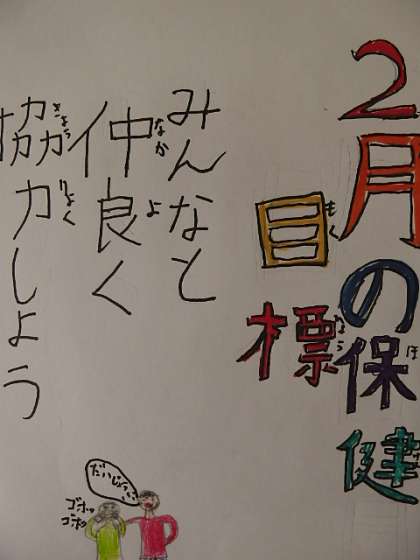 2月の保健
ほ
目標
もく
みんなと
仲良く
なかよ
協力しよう
きょうりょく
だいじょうぶ
ゴホッ
ゴホッ